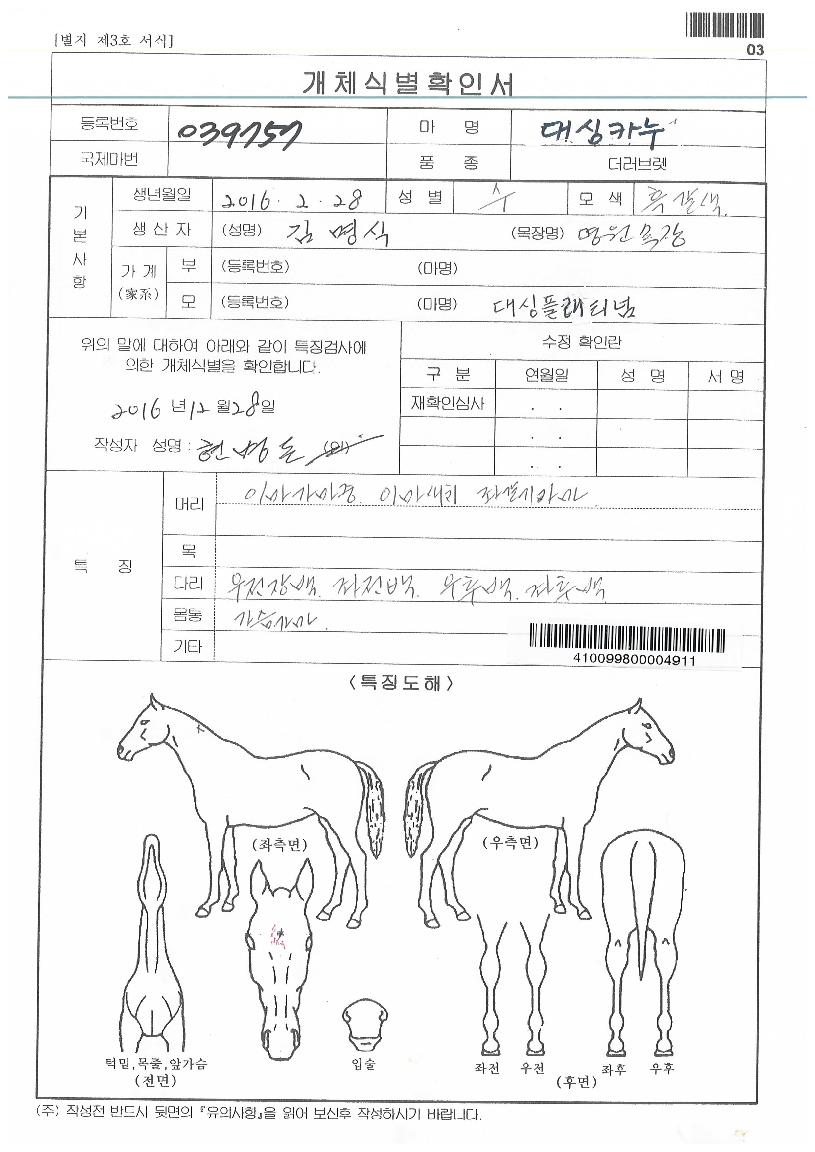 [별지 제3호 서식]
03
개체식별확인서
등록번호 039757 마 명 대싱카누
국제마번 품 종 더러브렛
기본사항
생년월일 2016. 2. 28 성 별 수 모 색 흑갈색.
생 산 자 (성명) 김명식 (목장명) 영원목장
가 계 (家系) 부 (등록번호) (마명)
모 (등록번호) (마명) 대싱플래티넘
위의 말에 대하여 아래와 같이 특징검사에
의한 개체식별을 확인합니다.
2016 년 12 월 28일
작성자 성명 : (인)
수정 확인란
구 분 연월일 성 명 서 명
재확인심사 . .
. .
. .
특 징
머리 이마가마중 좌갈기가마
목
다리 우전장백. 좌전백. 우후백. 좌후백
몸통 가슴가마.
기타
410099800004911
<특징도해>
(좌측면) (우측면)
턱밑,목줄,앞가슴
(전면)
입술
좌전 우전 좌후 우후
(후면)
(주) 작성전 반드시 뒷면의 『유의사항』을 읽어 보신후 작성하시기 바랍니다.